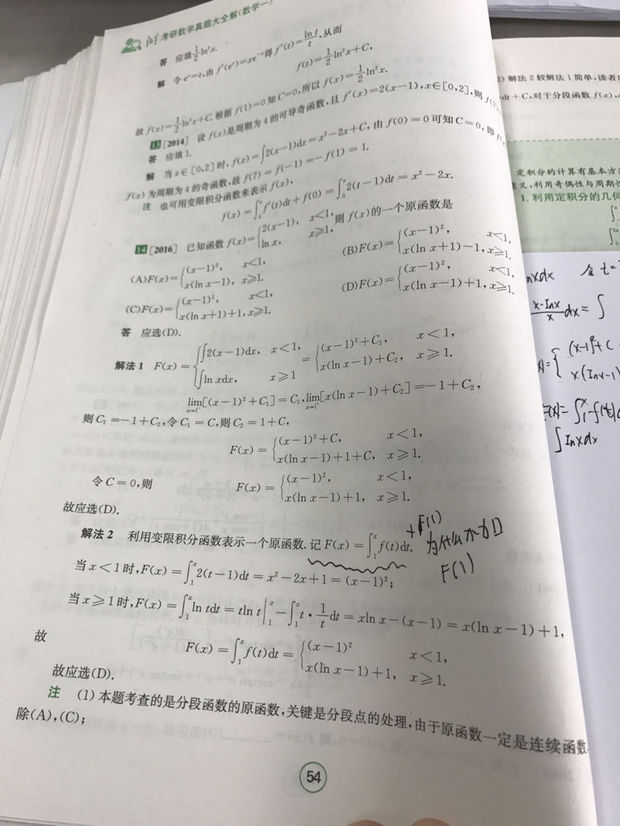 考研数学真题大全解(数学一)
答 应填$\frac{1}{2}\ln^2 x$.
解 令 $e^x=t$,由 $f'(e^x)=xe^{-x}$得 $f'(t)=\frac{\ln t}{t}$,从而
$f(t)=\frac{1}{2}\ln^2 x+C$,
故 $f(x)=\frac{1}{2}\ln^2 x+C$,根据 $f(1)=0$ 知 $C=0$,所以 $f(x)=\frac{1}{2}\ln^2 x$.
13 [2014] 设 $f(x)$是周期为4的可导奇函数,且 $f'(x)=2(x-1),x\in[0,2]$,则
答 应填1.
解 当 $x\in[0,2]$时,$f(x)=\int 2(x-1)dx=x^2-2x+C$,由 $f(0)=0$ 可知 $C=0$,即
$f(x)$为周期为4的奇函数,故 $f(7)=f(-1)=-f(1)=1$.
注 也可用变限积分函数来表示 $f(x)$,
$f(x)=\int_0^x f'(t)dt+f(0)=\int_0^x 2(t-1)dt=x^2-2x$.
14 [2016] 已知函数 $f(x)=\begin{cases}2(x-1), & x<1,\\ \ln x, & x\geqslant 1,\end{cases}$则 $f(x)$的一个原函数是
(A)$F(x)=\begin{cases}(x-1)^2, & x<1,\\ x(\ln x-1), & x\geqslant 1.\end{cases}$ (B)$F(x)=\begin{cases}(x-1)^2, & x<1,\\ x(\ln x+1)-1, & x\geqslant 1.\end{cases}$
(C)$F(x)=\begin{cases}(x-1)^2, & x<1,\\ x(\ln x+1)+1, & x\geqslant 1.\end{cases}$ (D)$F(x)=\begin{cases}(x-1)^2, & x<1,\\ x(\ln x-1)+1, & x\geqslant 1.\end{cases}$
答 应选(D).
解法1 $F(x)=\begin{cases}\int 2(x-1)dx, & x<1,\\ \int \ln xdx, & x\geqslant 1\end{cases}=\begin{cases}(x-1)^2+C_1, & x<1,\\ x(\ln x-1)+C_2, & x\geqslant 1.\end{cases}$
$\lim_{x\to1^-}[(x-1)^2+C_1]=C_1,\lim_{x\to1^+}[x(\ln x-1)+C_2]=-1+C_2$,
则 $C_1=-1+C_2$,令 $C_1=C$,则 $C_2=1+C$,
$F(x)=\begin{cases}(x-1)^2+C, & x<1,\\ x(\ln x-1)+1+C, & x\geqslant 1.\end{cases}$
令 $C=0$,则 $F(x)=\begin{cases}(x-1)^2, & x<1,\\ x(\ln x-1)+1, & x\geqslant 1.\end{cases}$
故应选(D).
解法2 利用变限积分函数表示一个原函数.记 $F(x)=\int_1^x f(t)dt$. +F(1)
为什么不加
F(1)
当 $x<1$ 时,$F(x)=\int_1^x 2(t-1)dt=x^2-2x+1=(x-1)^2$;
当 $x\geqslant 1$ 时,$F(x)=\int_1^x \ln tdt=t\ln t\big|_1^x-\int_1^x t\cdot\frac{1}{t}dt=x\ln x-(x-1)=x(\ln x-1)+1$,
故 $F(x)=\int_1^x f(t)dt=\begin{cases}(x-1)^2 & x<1,\\ x(\ln x-1)+1, & x\geqslant 1.\end{cases}$
故应选(D).
注 (1)本题考查的是分段函数的原函数,关键是分段点的处理,由于原函数一定是连续函数
除(A),(C);
54
解法2较解法1简单,读者
+C,对于分段函数 $f(x)$,
定积分的计算有基本方
利用奇偶性与周期
1. 利用定积分的几何
nxdx 令 t=
$\frac{x-\ln x}{x}dx=\int$
$\begin{cases}(x-1)^2+C\\ x(\ln x-1)\end{cases}$
$F(x)=\int_1^x f(t)d$
$\int \ln xdx$